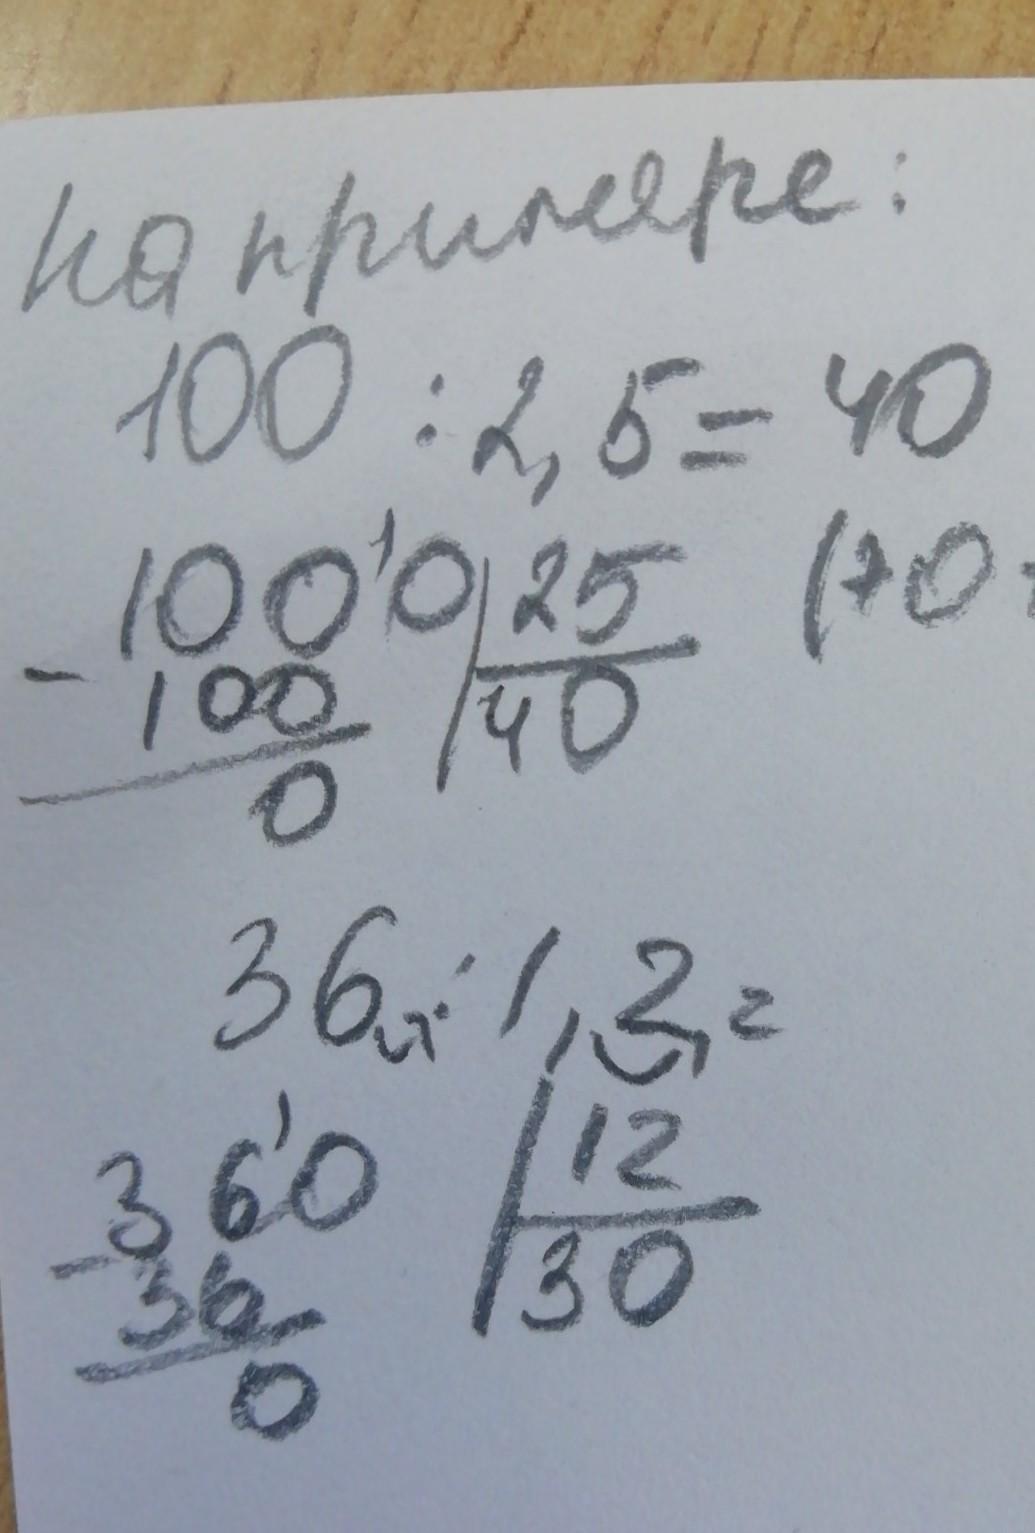 на примере:
100 : 2,5 = 40
100'0 25 (70
- 100 40
0
36, : 1,2, =
36'0 12
- 36 30
0